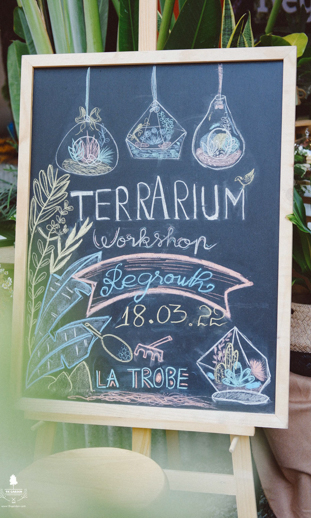 TERRARIUM
Workshop
Regrouth
18.03.22
LA TROBE